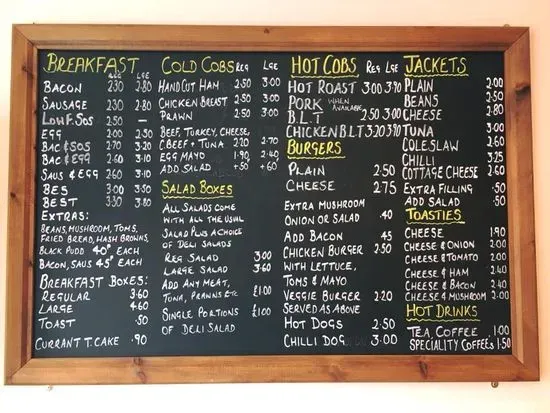 BREAKFAST
REG LGE
BACON 2.30 2.80
SAUSAGE 2.30 2.80
LOW F. SOS 2.50 —
EGG 2.00 2.50
BAC & SOS 2.70 3.20
BAC & EGG 2.60 3.10
SAUS & EGG 2.60 3.10
BES 3.00 3.50
BEST 3.30 3.80
EXTRAS:
BEANS, MUSHROOM, TOMS,
FRIED BREAD, HASH BROWNS,
BLACK PUDD 40P EACH
BACON, SAUS 45P EACH
BREAKFAST BOXES:
REGULAR 3.60
LARGE 4.60
TOAST .50
CURRANT T.CAKE .90
COLD COBS REG LGE
HAND CUT HAM 2.50 3.00
CHICKEN BREAST 2.50 3.00
PRAWN 2.50 3.00
BEEF, TURKEY, CHEESE,
C.BEEF & TUNA 2.20 2.70
EGG MAYO 1.90 2.40
ADD SALAD +50 +60
SALAD BOXES
ALL SALADS COME
WITH ALL THE USUAL
SALAD PLUS A CHOICE
OF DELI SALADS
REG SALAD 3.00
LARGE SALAD 3.60
ADD ANY MEAT,
TUNA, PRAWNS ETC £1.00
SINGLE PORTIONS £1.00
OF DELI SALAD
HOT COBS REG LGE
HOT ROAST 3.00 3.90
PORK WHEN AVAILABLE
B.L.T 2.50 3.00
CHICKEN BLT 3.20 3.90
BURGERS
PLAIN 2.50
CHEESE 2.75
EXTRA MUSHROOM
ONION OR SALAD .40
ADD BACON .45
CHICKEN BURGER 2.50
WITH LETTUCE,
TOMS & MAYO
VEGGIE BURGER 2.20
SERVED AS ABOVE
HOT DOGS 2.50
CHILLI DOG 3.00
JACKETS
PLAIN 2.00
BEANS 2.50
CHEESE 2.80
TUNA 3.00
COLESLAW 2.60
CHILLI 3.25
COTTAGE CHEESE 2.60
EXTRA FILLING .50
ADD SALAD .50
TOASTIES
CHEESE 1.90
CHEESE & ONION 2.00
CHEESE & TOMATO 2.00
CHEESE & HAM 2.40
CHEESE & BACON 2.40
CHEESE & MUSHROOM 2.00
HOT DRINKS
TEA, COFFEE 1.00
SPECIALITY COFFEES 1.50